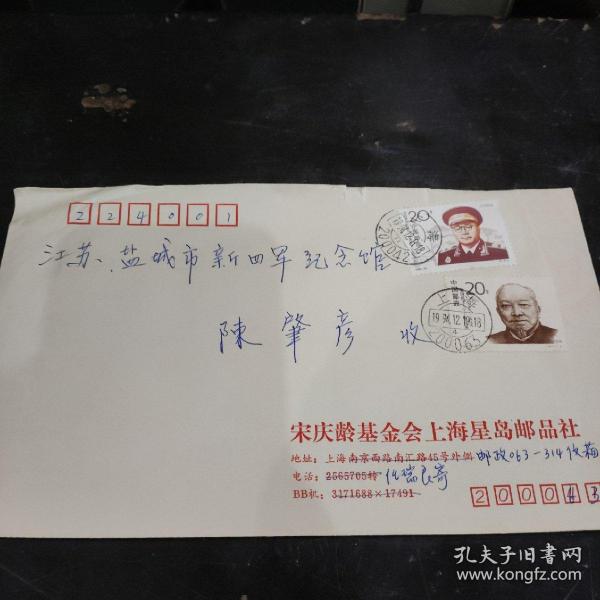 224001
江苏、盐城市新四军纪念馆
陳肇彦 收
20分
20分
中国邮政
上海
1994.12.18.18
200063
宋庆龄基金会上海星岛邮品社
地址：上海南京西路南汇路45号外侧 邮政063-314信箱
电话：2565705转 任瑞良寄
BB机：3171688×17491
200063
孔夫子旧书网
www.kongfz.com